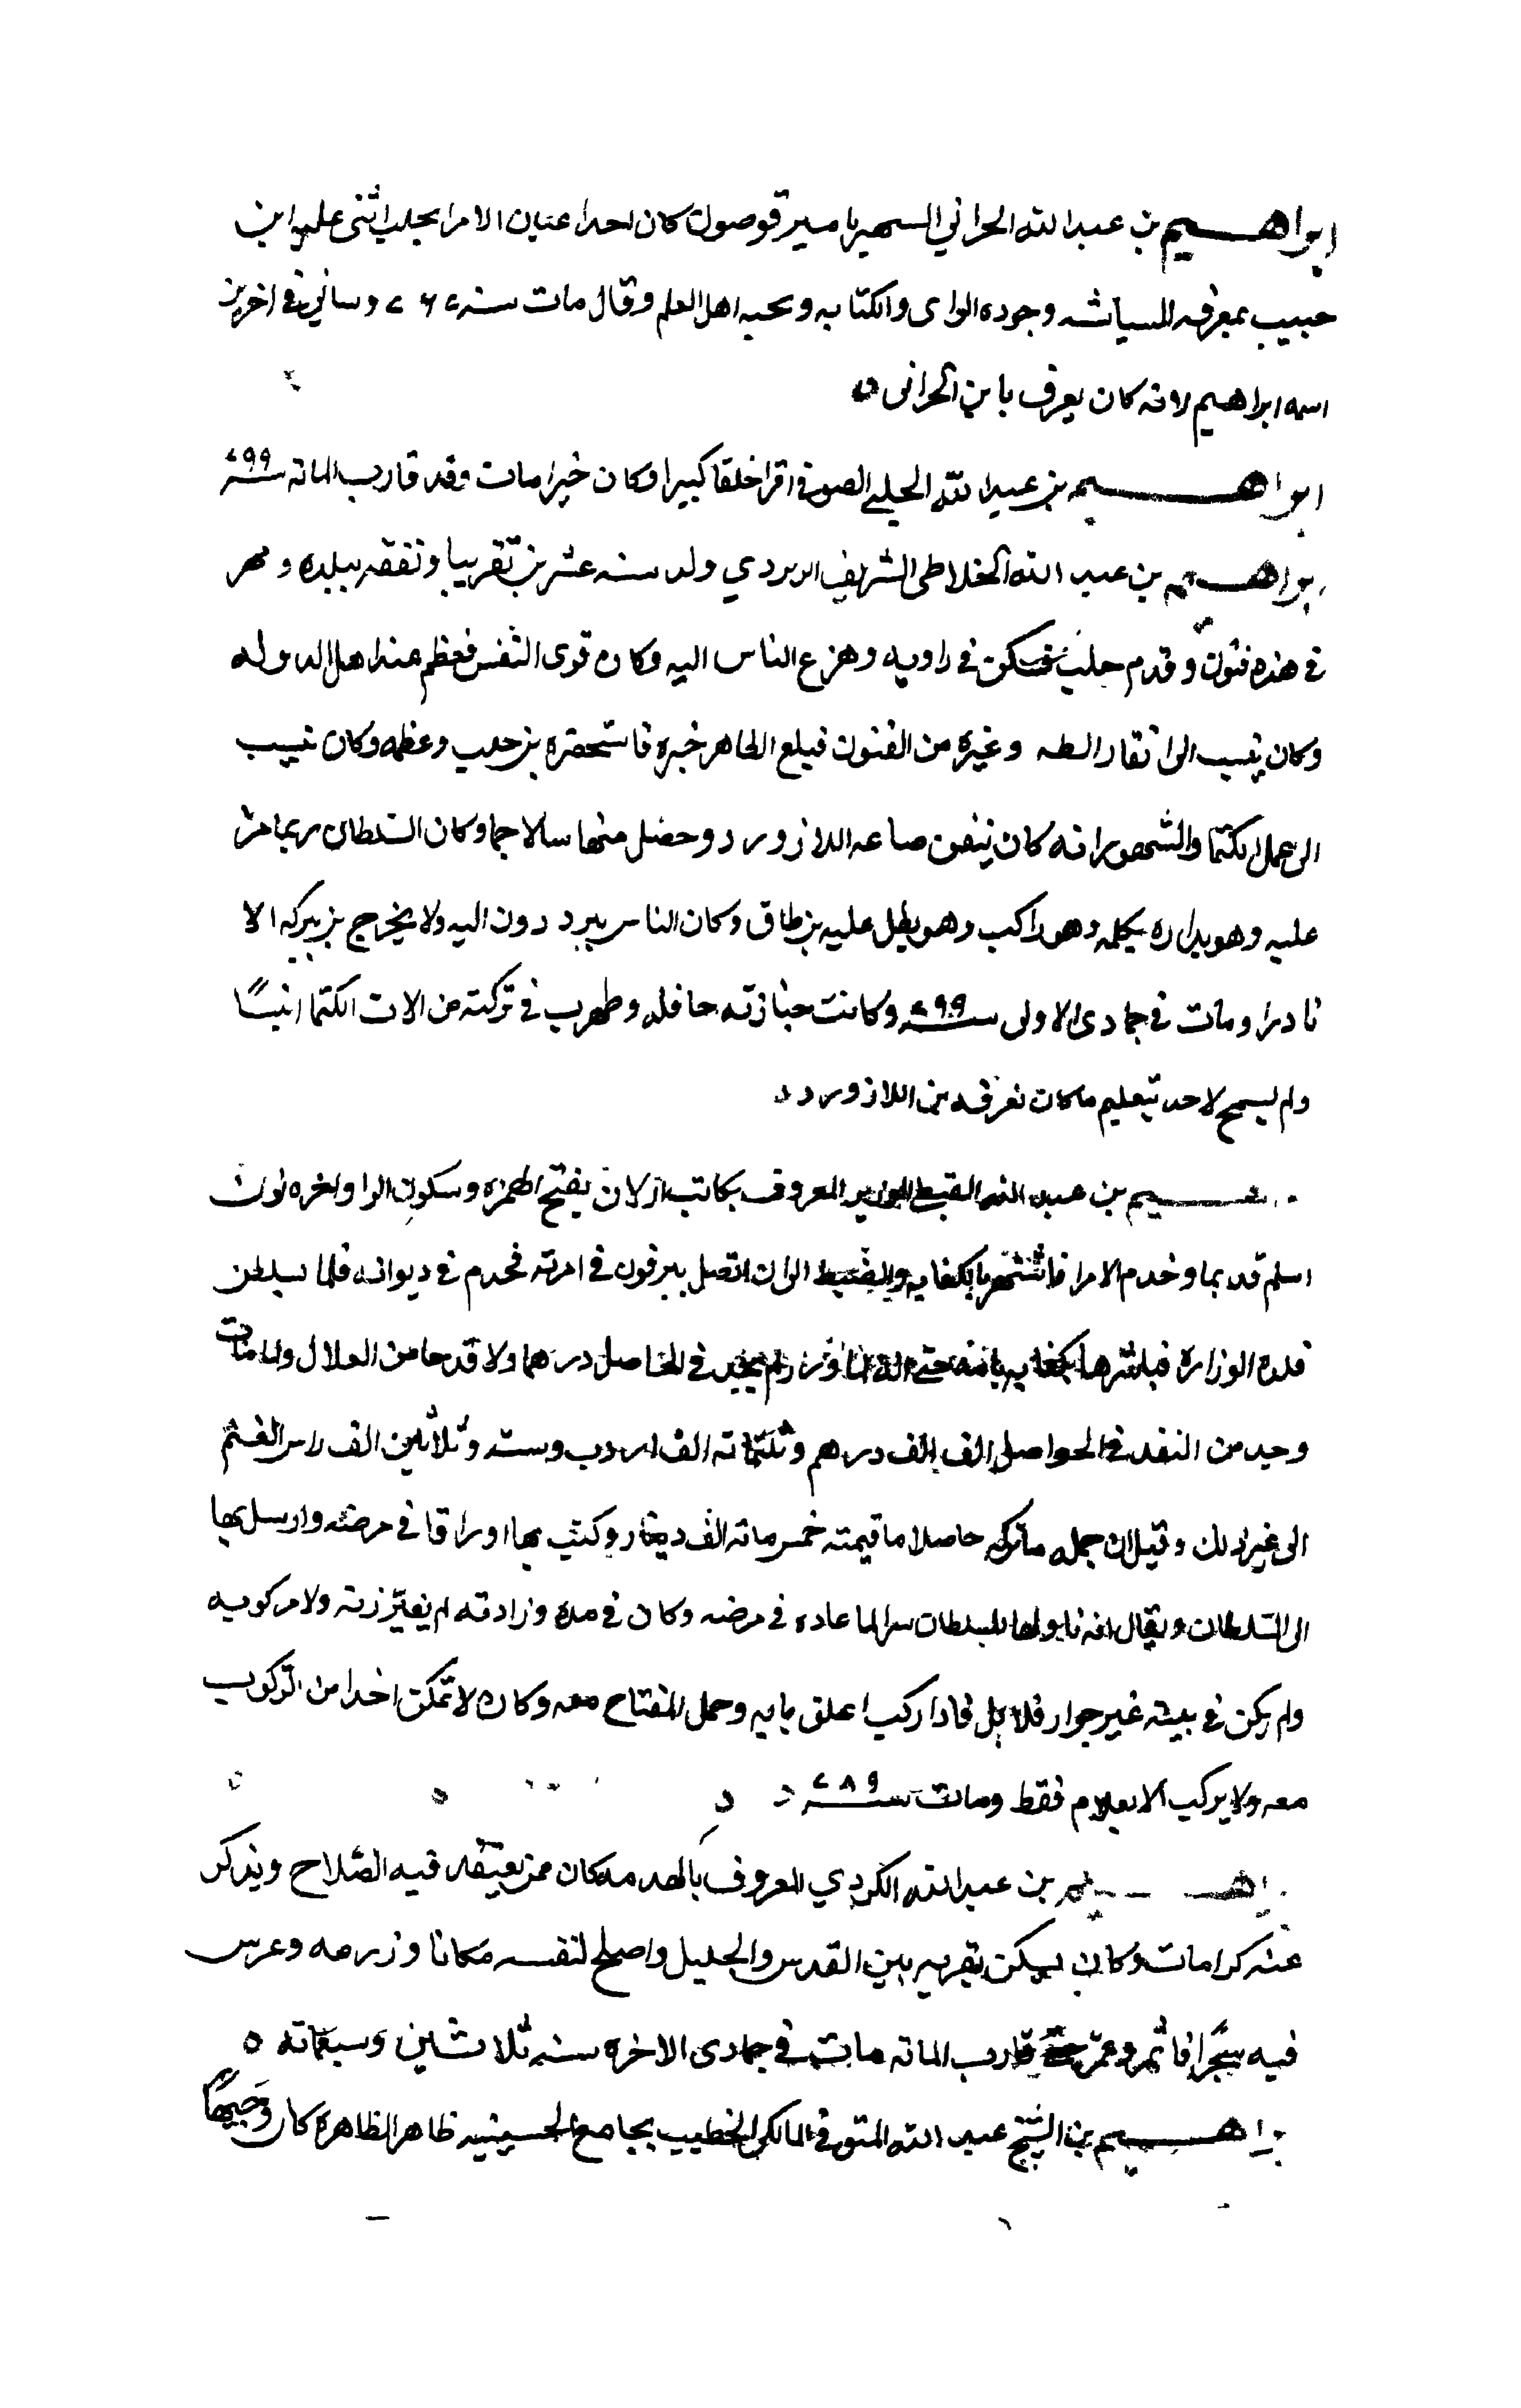 ابراهيم بن عبد الله الحراني الشهير بامير قوصون كان احد اعيان الامرا بحلب اثنى عليه ابن
حبيب بمعرفه السياسه وجوده الراى والكتابه ومحبه اهل العلم وقال مات سنه ٧٦٤ وساتى فى اخر من
اسمه ابراهيم لانه كان يعرف بابن الحرانى
ابراهيم بن عبد الله الحلبي الصوفى اقرا خلقا كبيرا وكان خيرا مات وقد قارب المائه سنه ٧٩٩
ابراهيم بن عبد الله الخلاطى الشريف ولد سنه عشرين تقريبا وتفقه ببلده ومهر
فى هذه فنون وقدم حلب فسكن فى زاويه وهرع الناس اليه وكان قوى النفس فعظم عند اهل الدوله
وكان ينسب الى اتقان الطب وغيره من الفنون فبلغ الظاهر خبره فاستحضره من حلب وعظمه وكان ينسب
الى عمل الكيميا والمشهور انه كان يتقن صناعه اللازورد وحصل منها مالا جما وكان السلطان ربما مر
عليه وهو بداره يكلمه وهو راكب وهو يطل عليه من طاق وكان الناس يترددون اليه ولا يخرج من منزله الا
نادرا ومات فى جمادى الاولى سنه ٧٩٩ وكانت جنازته حافله وظهرت فى تركته من الات الكيميا اشيا
ولم يسمح لاحد بتعليم ما كان يعرفه من اللازورد
ابراهيم بن عبد الله القبطى الوزير المعروف بكاتب ارلان بفتح الهمزه وسكون الرا واخره نون
اسلم قديما وخدم الامرا فاشتهر بالكفايه والضبط الى ان اتصل ببرقوق فى امرته فخدم فى ديوانه فلما تسلطن
قلده الوزاره فباشرها بكفايه فى الحاصل درهما ولا قدحا من الغلال ولما مات
وجد من النقد فى الحواصل الف الف درهم وثلثمائه الف اردب وسته وثلاثين الف راس الغنم
الى غير ذلك وقيل ان جمله ما تركه حاصلا ما قيمته خمس مائه الف دينار وكتب بها اوراقا فى مرضه وارسل بها
الى السلطان ويقال انه ناولها للسلطان سرا لما عاده فى مرضه وكان فى مده وزارته لم يغير زيه ولا مركوبه
ولم يكن فى بيته غير جوار قلايل فاذا ركب اغلق بابه وحمل المفتاح معه وكان لا يمكن احدا من الركوب
معه ولا يركب الا بغلام فقط ومات سنه ٧٨٩
ابراهيم بن عبد الله الكردي المعروف بالهدمه كان ممن يعتقد فيه الصلاح ويذكر
عنه كرامات وكان يسكن بقريه بين القدس والخليل واصلح لنفسه مكانا وزرعه وغرس
فيه شجرا فاثمر وعمر حتى قارب المائه مات فى جمادى الاخره سنه ثلاثين وسبعمائه
ابراهيم بن الشيخ عبد الله المنوفى المالكى الخطيب بجامع الحسينيه ظاهر القاهره كان وجيها